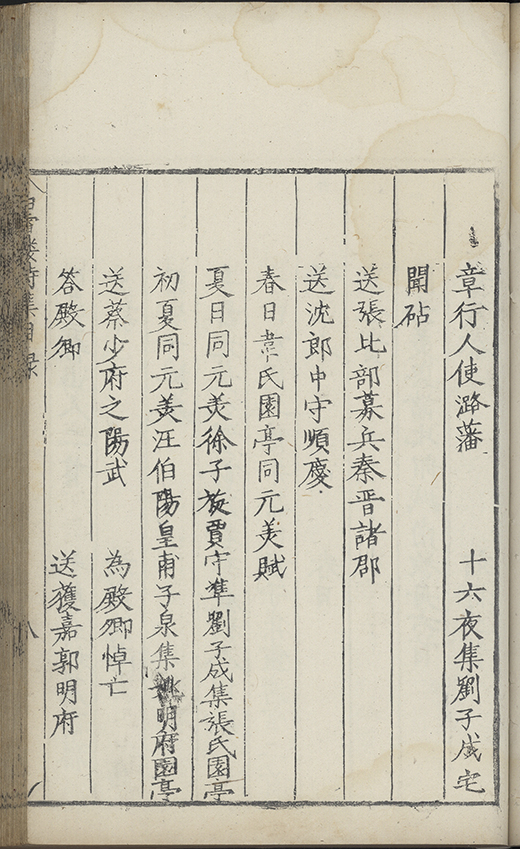 章行人使潞藩　十六夜集劉子成宅
聞砧
送張比部募兵秦晋諸郡
送沈郎中守順慶
春日韋氏園亭同元美賦
夏日同元美徐子旋賈守準劉子成集張氏園亭
初夏同元美汪伯陽皇甫子泉集明府園亭
送蔡少府之陽武　為殿卿悼亡
答殿卿　送獲嘉郭明府
白雪樓詩集目録　八